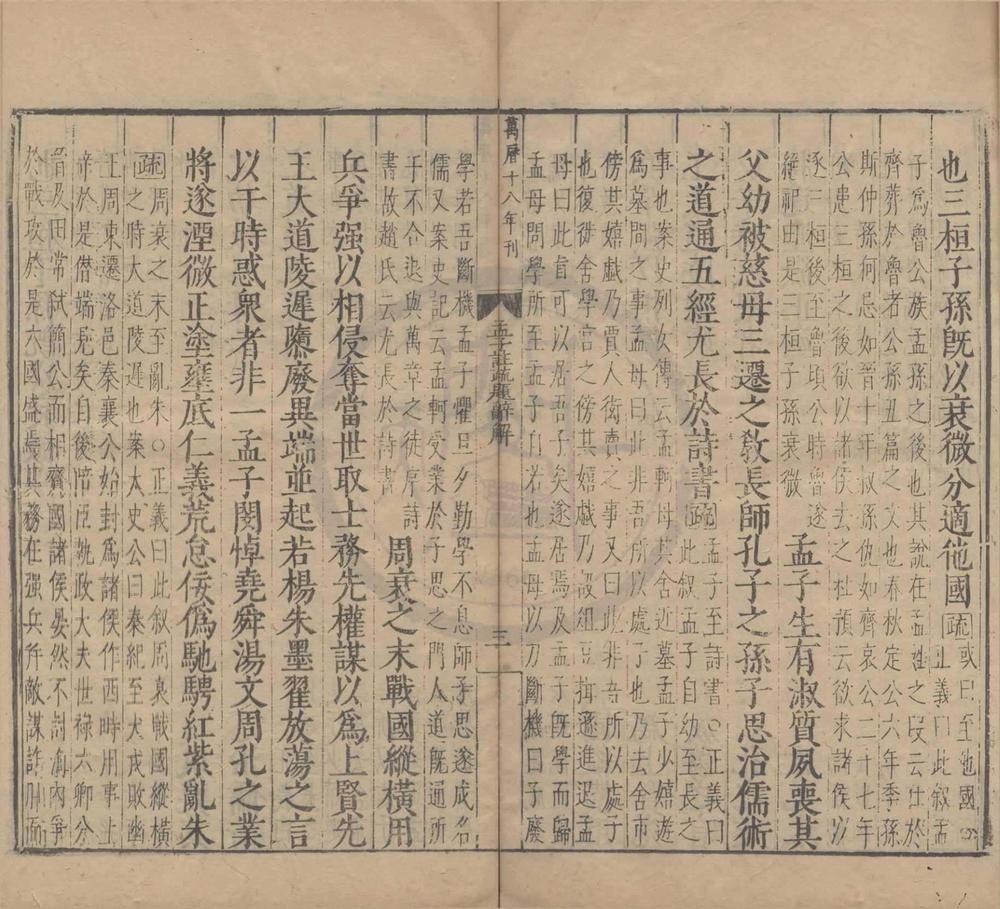 也三桓子孫旣以衰微分適他國疏或曰至他國○
正義曰此叙孟
子爲魯公族孟孫之後也其說在孟姓之段云仕於
齊葬於魯者公孫丑篇之文也春秋定公六年季孫
斯仲孫何忌如晉十年叔孫仇如齊哀公二十七年
公患三桓之後後欲以諸侯去之杜預云欲求諸侯以
逐三桓後至魯頃公時魯遂
絕祀由是三桓子孫衰微
孟子生有淑質夙喪其
父幼被慈母三遷之敎長師孔子之孫子思治儒術
之道通五經尤長於詩書疏孟子至詩書○正義曰
此叙孟子自幼至長之
事也案史列女傳云孟軻母其舍近墓孟子少嬉遊
爲墓間之事孟母曰此非吾所以處子也乃去舍市
傍其嬉戲乃賈人衒賣之事又曰此非吾所以處子
也復徙舍學宫之傍其嬉戲乃設俎豆揖遜進退孟
母曰此眞可以居吾子矣遂居焉及孟子旣學而歸
孟母問學所至孟子自若也孟母以刀斷機曰子廢
萬曆十八年刊
孟子註疏題辭解
三
學若吾斷機孟子懼旦夕勤學不息師子思遂成名
儒又案史記云孟軻受業於子思之門人道旣通所
于不合退與萬章之徒序詩
書故趙氏云尤長於詩書
周衰之末戰國縱橫用
兵爭强以相侵奪當世取士務先權謀以爲上賢先
王大道陵遲隳廢異端並起若楊朱墨翟放蕩之言
以干時惑衆者非一孟子閔悼堯舜湯文周孔之業
將遂湮微正塗壅底仁義荒怠佞僞馳騁紅紫亂朱
疏周衰之末至亂朱○正義曰此叙周衰戰國縱橫
之時大道陵遲也案太史公曰秦紀至犬戎敗幽
王周東遷洛邑秦襄公始封爲諸侯作西畤用事上
帝於是僭端見矣自後陪臣執政大夫世祿六卿分
晉及田常弑簡公而相齊國諸侯晏然不討海內爭
於戰攻於是六國盛焉其務在强兵并敵謀詐用而